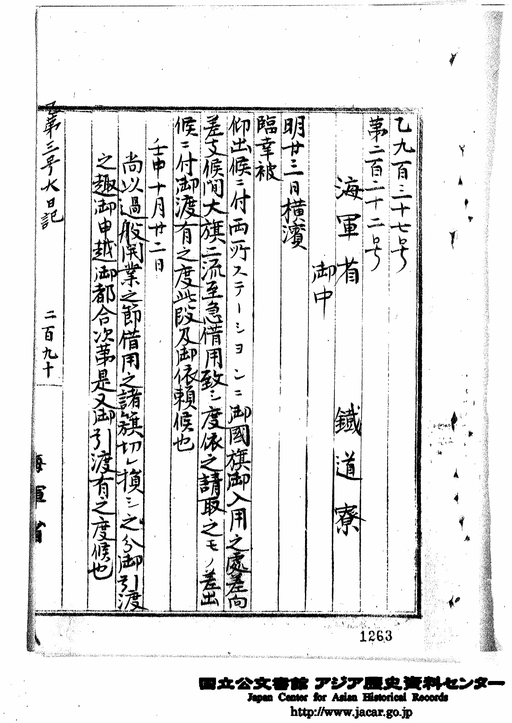 乙九百三十七号
第二百二十二号
海軍省 鐵道寮
御中
明廿三日横濱
臨幸被
仰出候ニ付両所ステーションニ御國旗御入用之處差向
差支候間大旗二流至急借用致シ度依之請取之モノ差出
候ニ付御渡有之度此段及御依頼候也
壬申十月廿二日
尚以過般開業之節借用之諸籏切レ損シ之分御引渡
之趣御申越御都合次第是又御引渡有之度候也
第三号大日記 二百九十
海軍省
1263
国立公文書館 アジア歴史資料センター
Japan Center for Asian Historical Records
http://www.jacar.go.jp